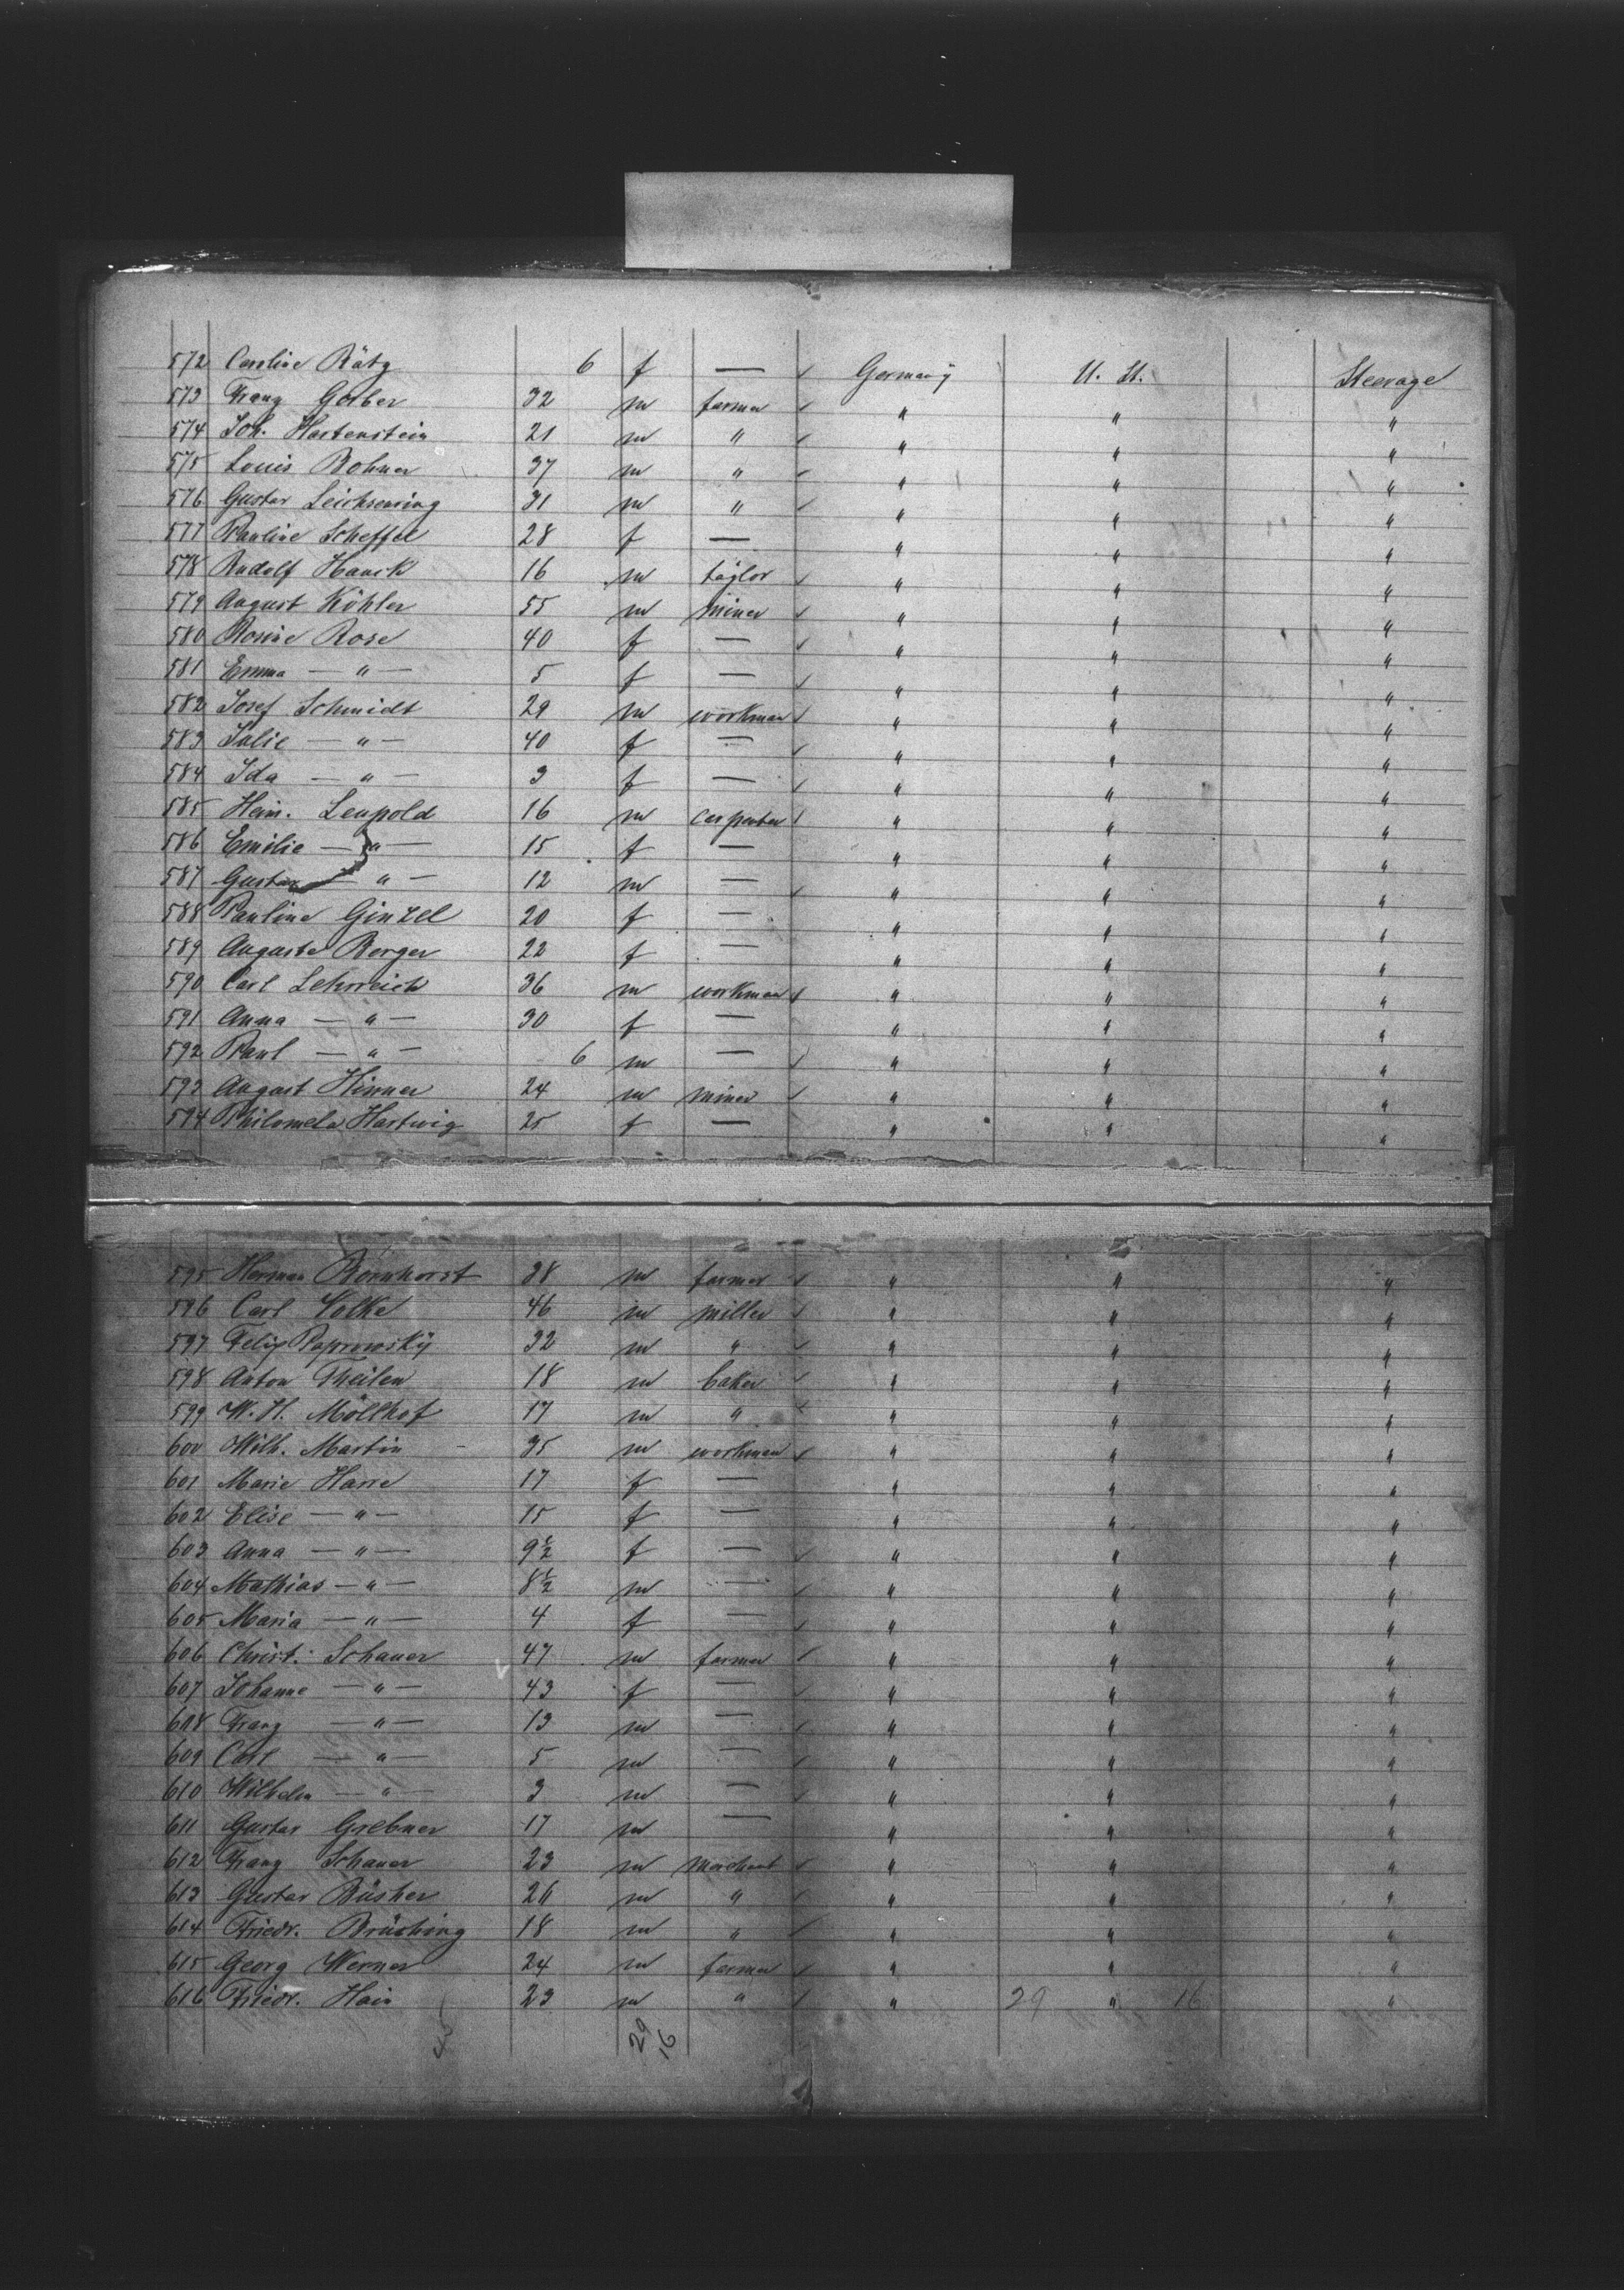 572 Caroline Rätz 6 f — ✓ Germany U. St. Steerage
573 Franz Gerber 32 m farmer ✓ " " "
574 Joh. Hartenstein 21 m " ✓ " " "
575 Louis Bohner 37 m " ✓ " " "
576 Gustav Leichsenring 31 m " ✓ " " "
577 Pauline Scheffel 28 f — " " "
578 Rudolf Hauck 16 m taylor ✓ " " "
579 August Köhler 55 m miner ✓ " " "
580 Rosine Rose 40 f — ✓ " " "
581 Emma — " — 5 f — ✓ " " "
582 Josef Schmidt 29 m workman ✓ " " "
583 Julie — " — 40 f — ✓ " " "
584 Ida — " — 3 f — ✓ " " "
585 Heinr. Leupold 16 m carpenter ✓ " " "
586 Emilie — " — 15 f — " " "
587 Gustav — " — 12 m — ✓ " " "
588 Pauline Ginzel 20 f — " " "
589 Auguste Berger 22 f — " " "
590 Carl Lehrreich 36 m workman ✓ " " "
591 Anna — " — 30 f — " " "
592 Paul — " — 6 m — ✓ " " "
593 August Hinner 24 m miner ✓ " " "
594 Philomela Hartwig 25 f — " " "
595 Herman Börnhorst 38 m farmer ✓ " " "
596 Carl Volke 46 m miller ✓ " " "
597 Felix Paprowsky 32 m " ✓ " " "
598 Anton Theilen 18 m baker ✓ " " "
599 W. H. Möllhof 17 m " ✓ " " "
600 Wilh. Martin 35 m workman ✓ " " "
601 Marie Harre 17 f — " " "
602 Elise — " — 15 f — " " "
603 Anna — " — 9½ f — ✓ " " "
604 Mathias — " — 8½ m — ✓ " " "
605 Maria — " — 4 f — ✓ " " "
606 Christ. Schauer 47 m farmer ✓ " " "
607 Johanne — " — 43 f — ✓ " " "
608 Franz — " — 13 m — ✓ " " "
609 Carl — " — 5 m — ✓ " " "
610 Wilhelm — " — 3 m — ✓ " " "
611 Gustav Grebner 17 m — " " "
612 Franz Schauer 23 m merchant ✓ " " "
613 Gustav Büsher 26 m " ✓ " " "
614 Friedr. Brüshing 18 m " ✓ " " "
615 Georg Werner 24 m farmer ✓ " " "
616 Friedr. Hain 23 m " ✓ " 29 " 16 "
45 29 16